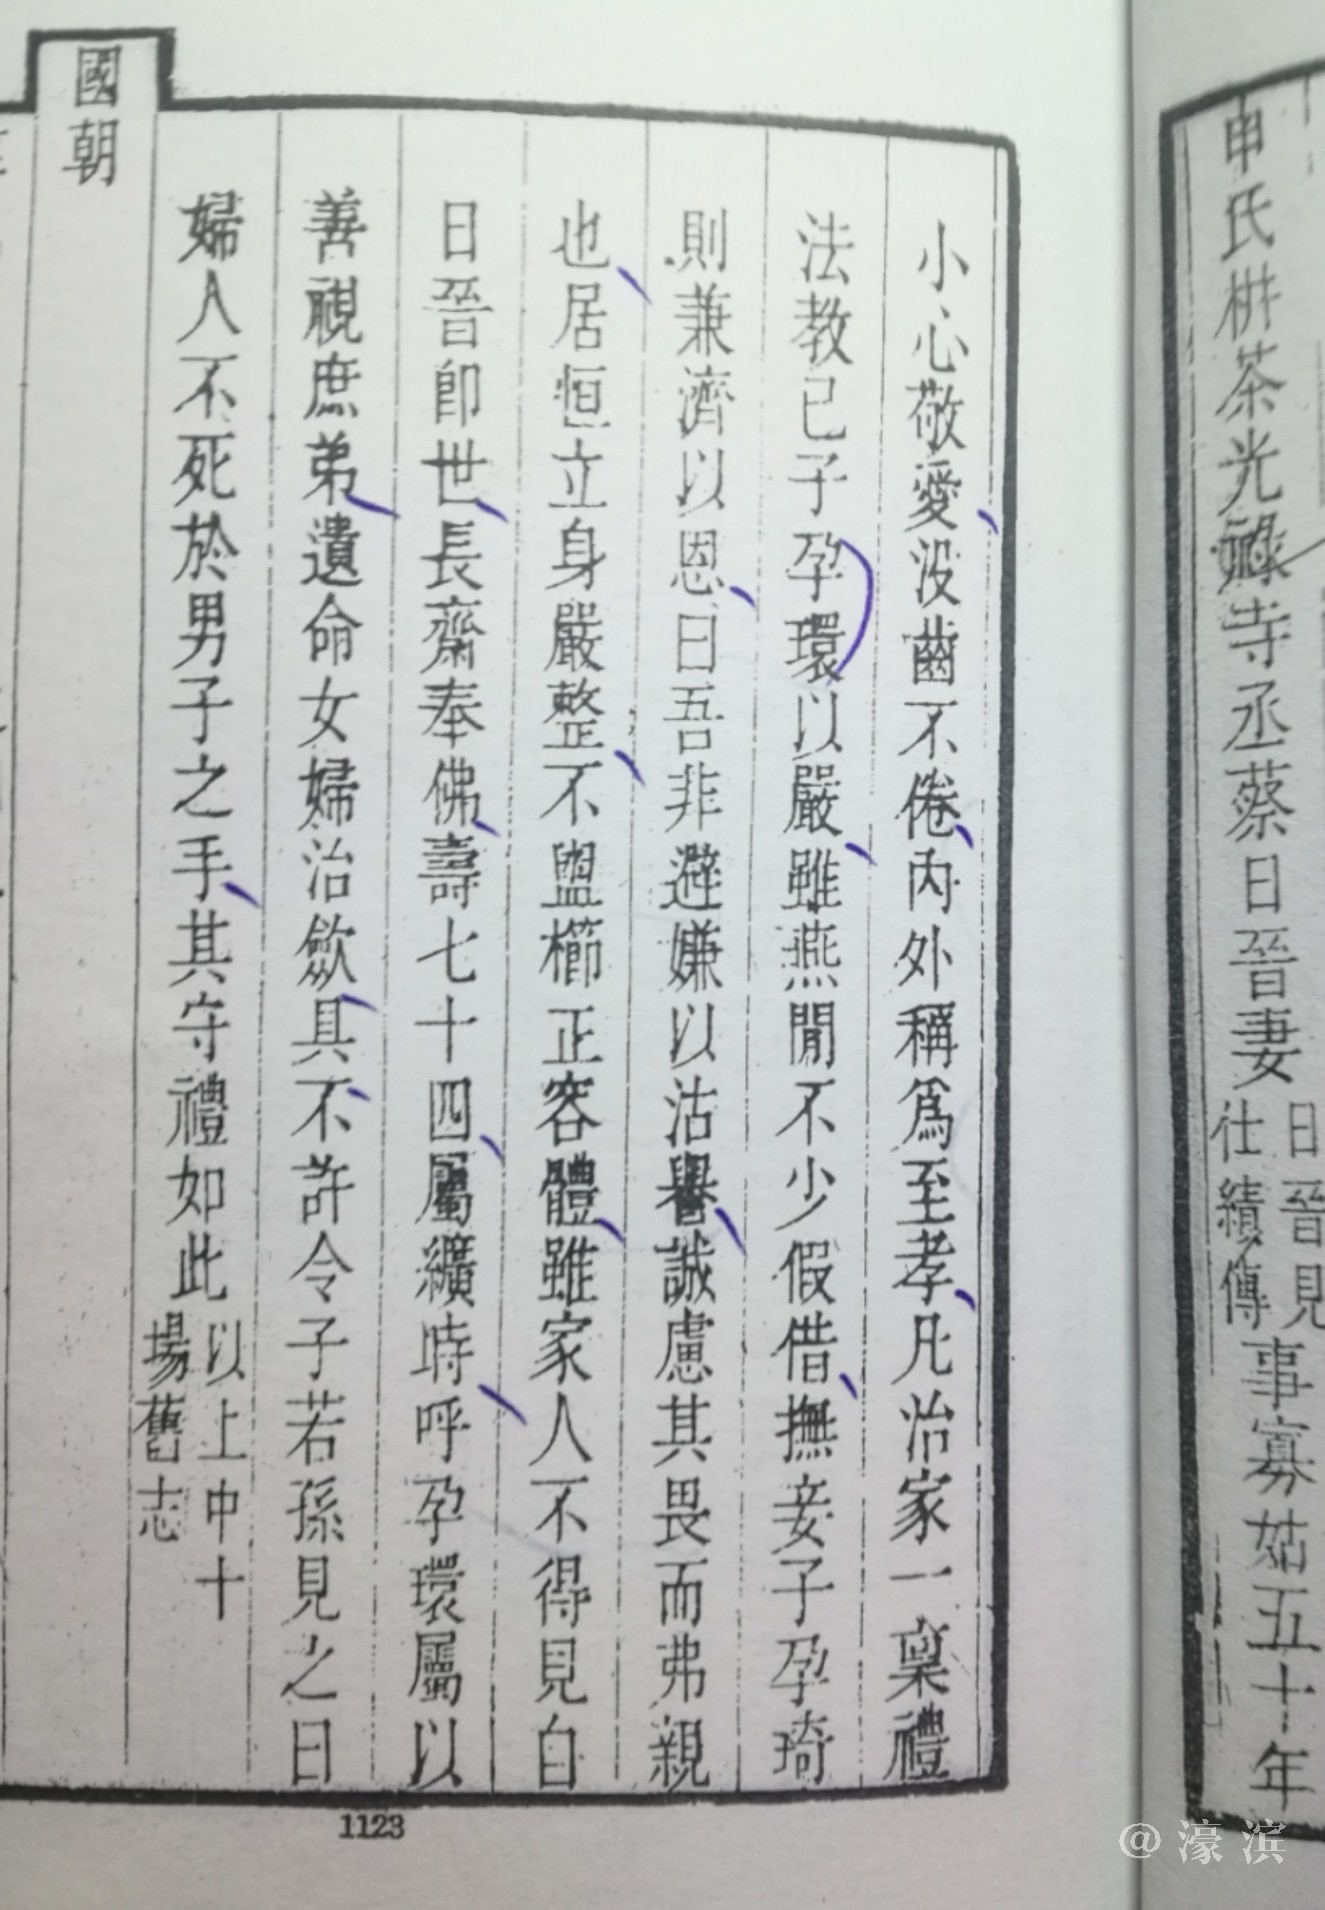 申氏栟茶光祿寺丞蔡日晉妻日晉見仕績傳事寡姑五十年
小心敬愛没齒不倦內外稱爲至孝凡治家一稟禮
法教己子孕環以嚴雖燕閒不少假借撫妾子孕琦
則兼濟以恩曰吾非避嫌以沽譽誠慮其畏而弗親
也居恒立身嚴整不盥櫛正容體雖家人不得見自
日晉卽世長齋奉佛壽七十四屬纊時呼孕環屬以
善視庶弟遺命女婦治歛具不許令子若孫見之曰
婦人不死於男子之手其守禮如此以上中十場舊志
國朝
1123
@濠滨